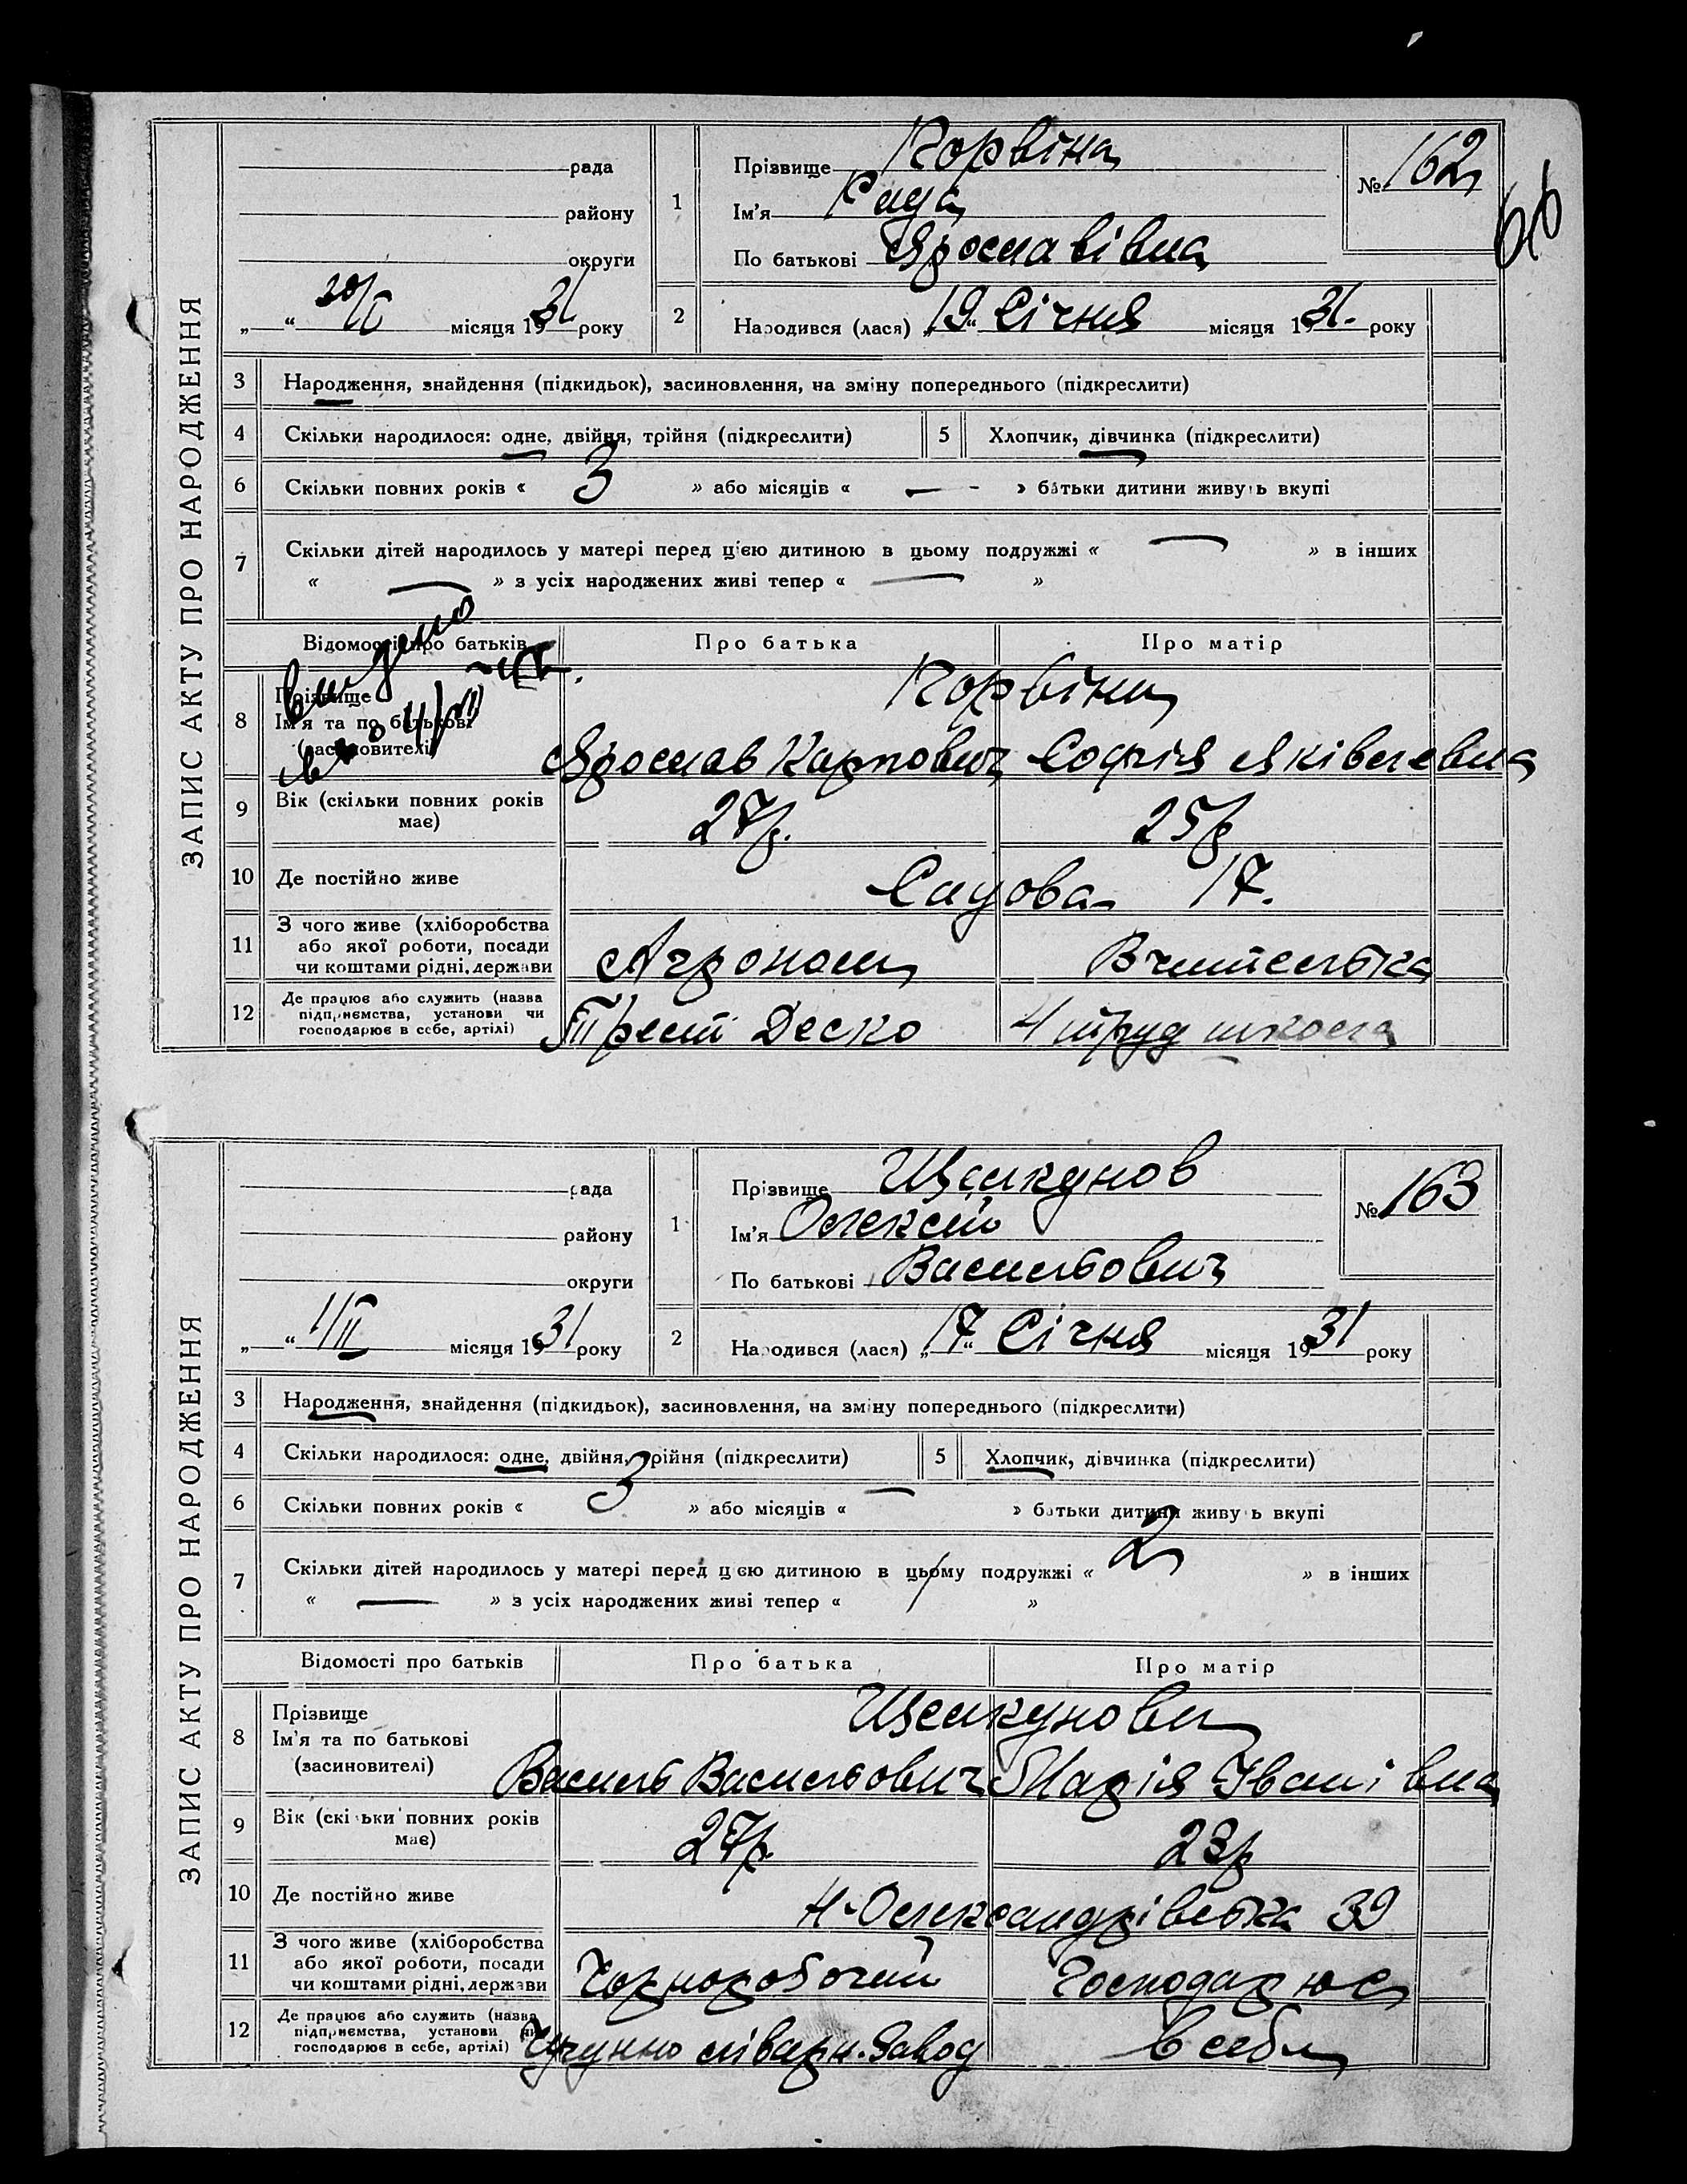 ЗАПИС АКТУ ПРО НАРОДЖЕННЯ
рада
району
округи
„ “ 30/I місяця 1931 року
1
Прізвище Корвіна
Ім'я
По батькові Ярославівна
№ 162
66
2
Народився (лася) „19“ Січня місяця 1931. року
3 Народження, знайдення (підкидьок), засиновлення, на зміну попереднього (підкреслити)
4 Скільки народилося: одне, двійня, трійня (підкреслити) 5 Хлопчик, дівчинка (підкреслити)
6 Скільки повних років « 3 » або місяців « — » батьки дитини живуть вкупі
7 Скільки дітей народилось у матері перед цією дитиною в цьому подружжі « — » в інших
« — » з усіх народжених живі тепер « — »
Відомості про батьків Про батька Про матір
видано
8 Прізвище
Ім'я та по батькові
(засиновителі)
Корвіни
Ярослав Карпович Софія Яківлевна
9 Вік (скільки повних років має) 27р. 25р
10 Де постійно живе Садова 17.
11 З чого живе (хліборобства
або якої роботи, посади
чи коштами рідні, держави
Агроном Вчителька
12 Де працює або служить (назва
підприємства, установи чи
господарює в себе, артілі)
Трест Деско 4 труд школа
ЗАПИС АКТУ ПРО НАРОДЖЕННЯ
рада
району
округи
„ “ 1/II місяця 1931 року
1
Прізвище Щелкунов
Ім'я Олексій
По батькові Васильович
№ 163
2
Народився (лася) „17“ Січня місяця 1931 року
3 Народження, знайдення (підкидьок), засиновлення, на зміну попереднього (підкреслити)
4 Скільки народилося: одне, двійня, трійня (підкреслити) 5 Хлопчик, дівчинка (підкреслити)
6 Скільки повних років « 3 » або місяців « — » батьки дитини живуть вкупі
7 Скільки дітей народилось у матері перед цією дитиною в цьому подружжі « 2 » в інших
« — » з усіх народжених живі тепер « / »
Відомості про батьків Про батька Про матір
8 Прізвище
Ім'я та по батькові
(засиновителі)
Щелкунови
Василь Васильович Марія Іванівна
9 Вік (скільки повних років має) 27р. 23р
10 Де постійно живе Н-Олександрівська 39
11 З чого живе (хліборобства
або якої роботи, посади
чи коштами рідні, держави
Чорноробочий Господарює
12 Де працює або служить (назва
підприємства, установи чи
господарює в себе, артілі)
Чугунно ліварн. Завод в себе